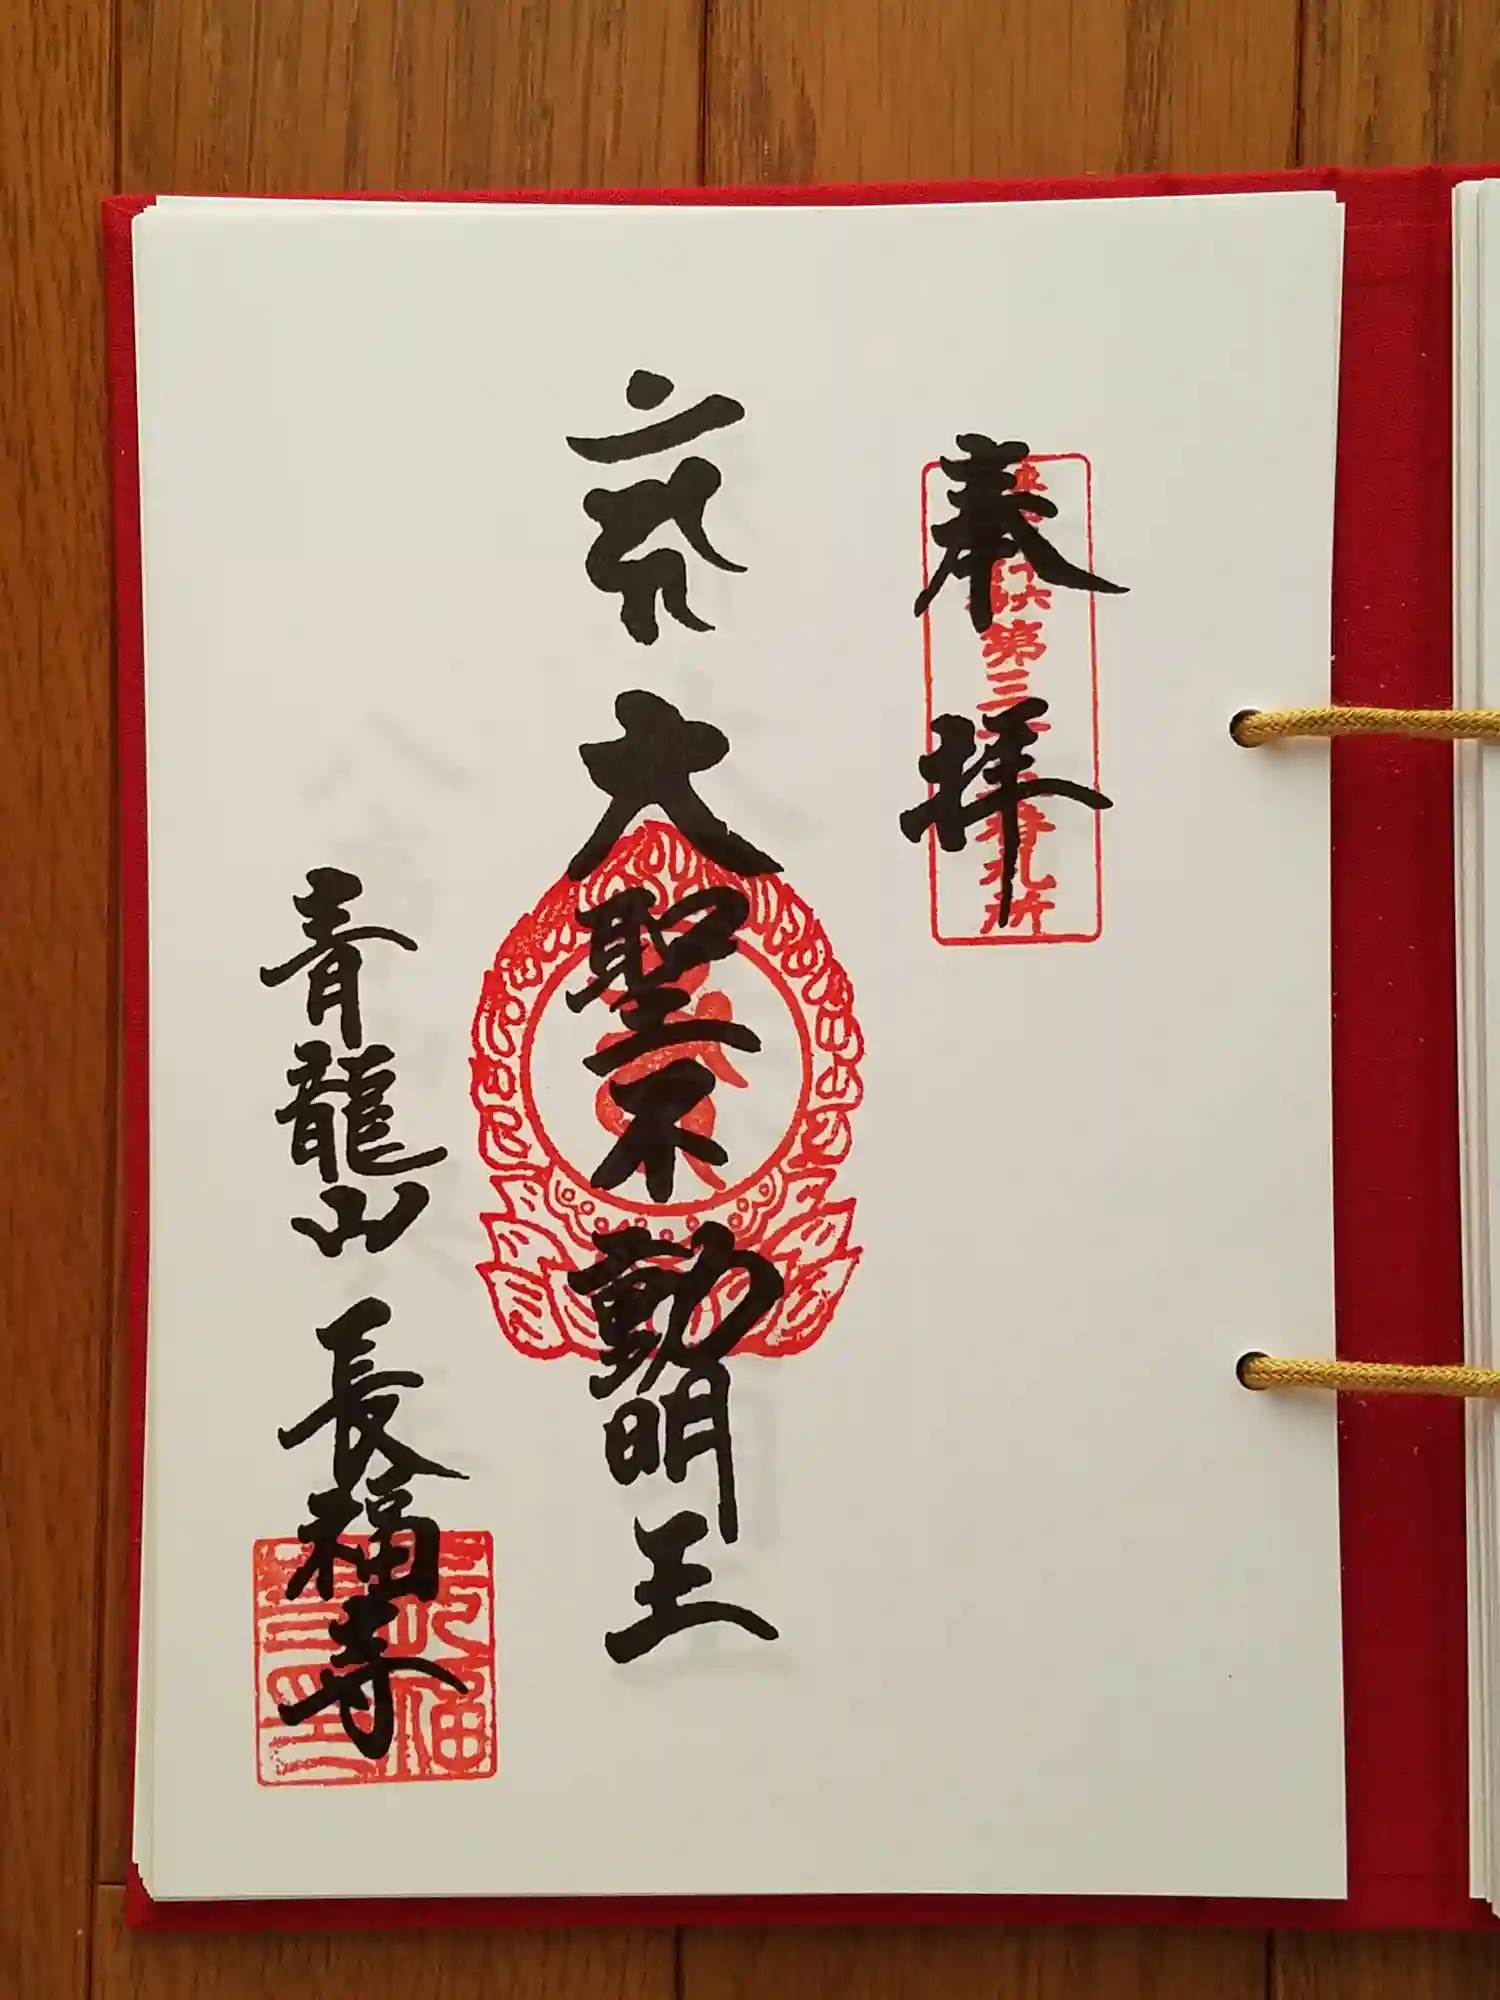 奉拝
第三
番札所
大聖不動明王
青龍山 長福寺